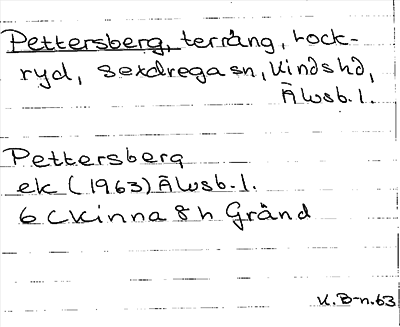 Pettersberg, terräng, Lock-
ryd, Sexdrega sn, Kinds hd,
Älvsb. l.
Pettersberg
ek (1963) Älvsb. l.
6 C Kinna 8 h Gränd
K. B-n. 63